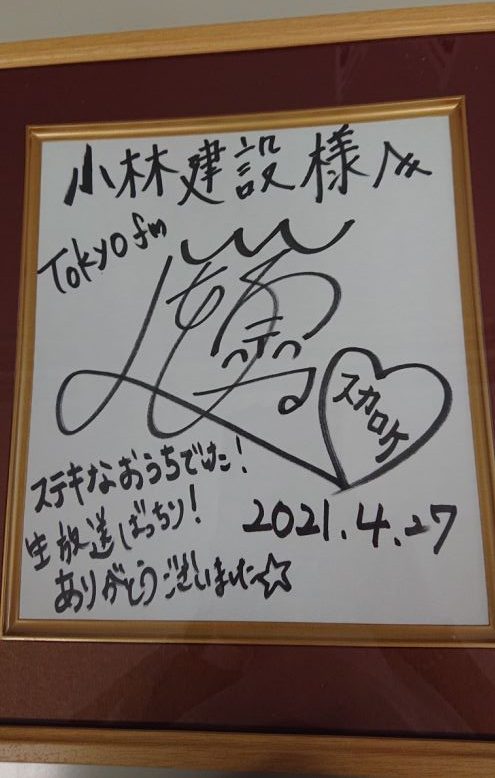 小林建設様へ
Tokyo fm
スカロケ
ステキなおうちでした!
生放送ばっちり!
ありがとうございました☆
2021.4.27